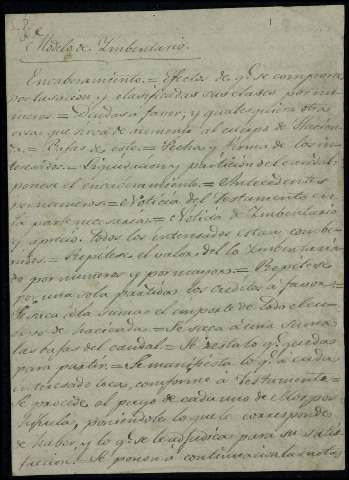 1
Modelo de Imbentario.
Encabezamiento. = Efectos de q.e se compone
por tasacion, y clasificadas sus clases por nu-
meros = Deudas à favor, y qualesquiera otra
cosa que sirva de aumento al cuerpo de Hacien-
da. = Bajas de este. = Fecha y firma de los in-
teresados. = Liquidacion y particion del caudal:
ponese el encavezamiento. = Antecedentes
por numeros = Noticia del Testamento en
la parte necesaria = Noticia de Imbentario
y aprecio. Todos los interesados estan combe-
nidos. = Repitese el valor de lo Imbentaria-
do por numeros y por mayor. = Repitese
por una sola partida los creditos à favor =
Se saca à la suma el importe de todo el cuer-
po de hacienda. = Se saca à una suma
las bajas del caudal = Se resta lo q.e queda
para partir. = Se manifiesta lo q.e à cada
interesado toca, conforme à Testamento =
Se procede al pago de cada uno de ellos por
hijuela, poniendole lo que le corresponde
de haber, y lo q.e se le adjudica para su satis-
faccion. Se pondrà à continuacion las notas